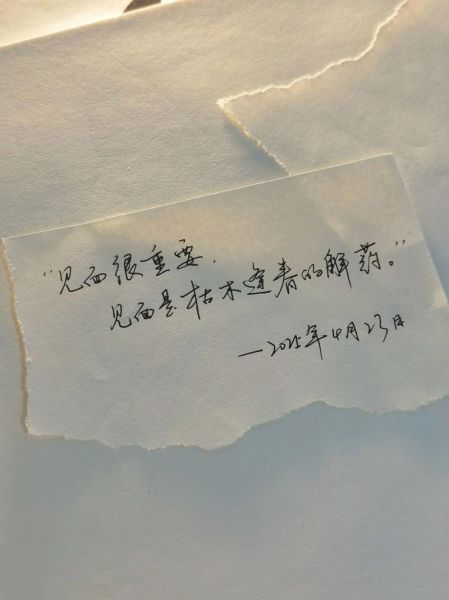 “见面很重要，
见面是枯木逢春的解药。”
—2025年4月23日